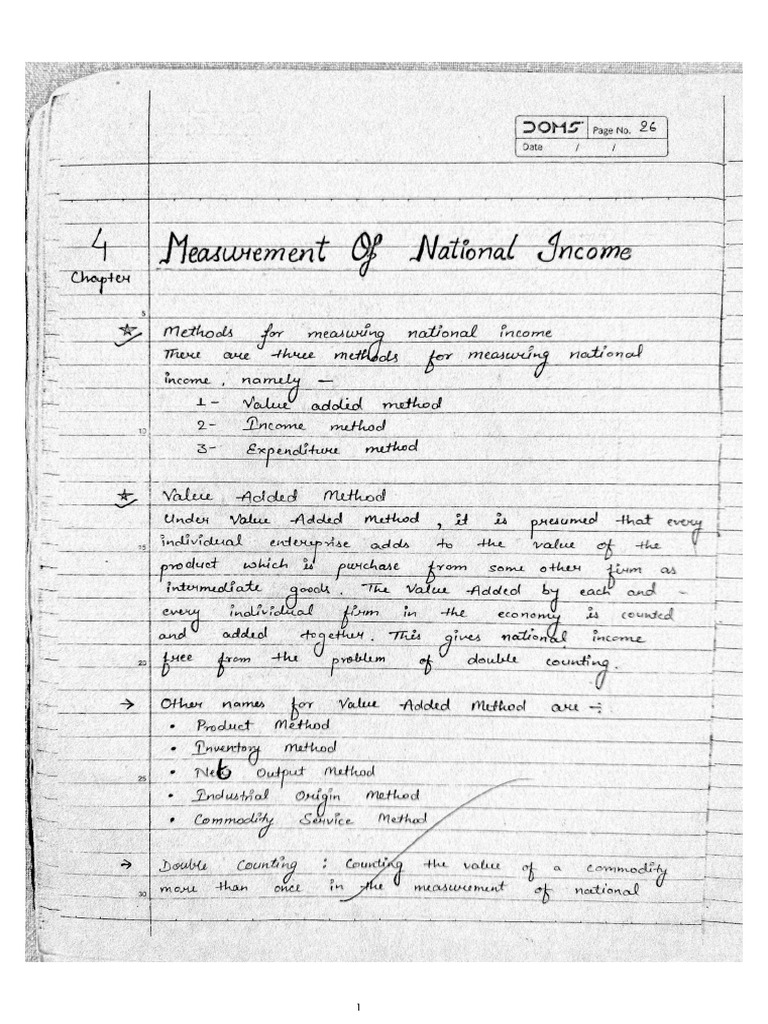 DOMS Page No. 26
Date / /
4 Measurement Of National Income
Chapter
5
☆ Methods for measuring national income
There are three methods for measuring national
income, namely –
1- Value added method
10 2- Income method
3- Expenditure method
☆ Value Added Method
Under Value Added Method, it is presumed that every
15 individual enterprise adds to the value of the
product which is purchase from some other firm as
intermediate goods. The Value Added by each and -
every individual firm in the economy is counted
and added together. This gives national income
20 free from the problem of double counting.
→ Other names for Value Added Method are :-
• Product Method
• Inventory Method
25 • Net Output Method
• Industrial Origin Method
• Commodity Service Method
→ Double Counting : Counting the value of a commodity
30 more than once in the measurement of national
1